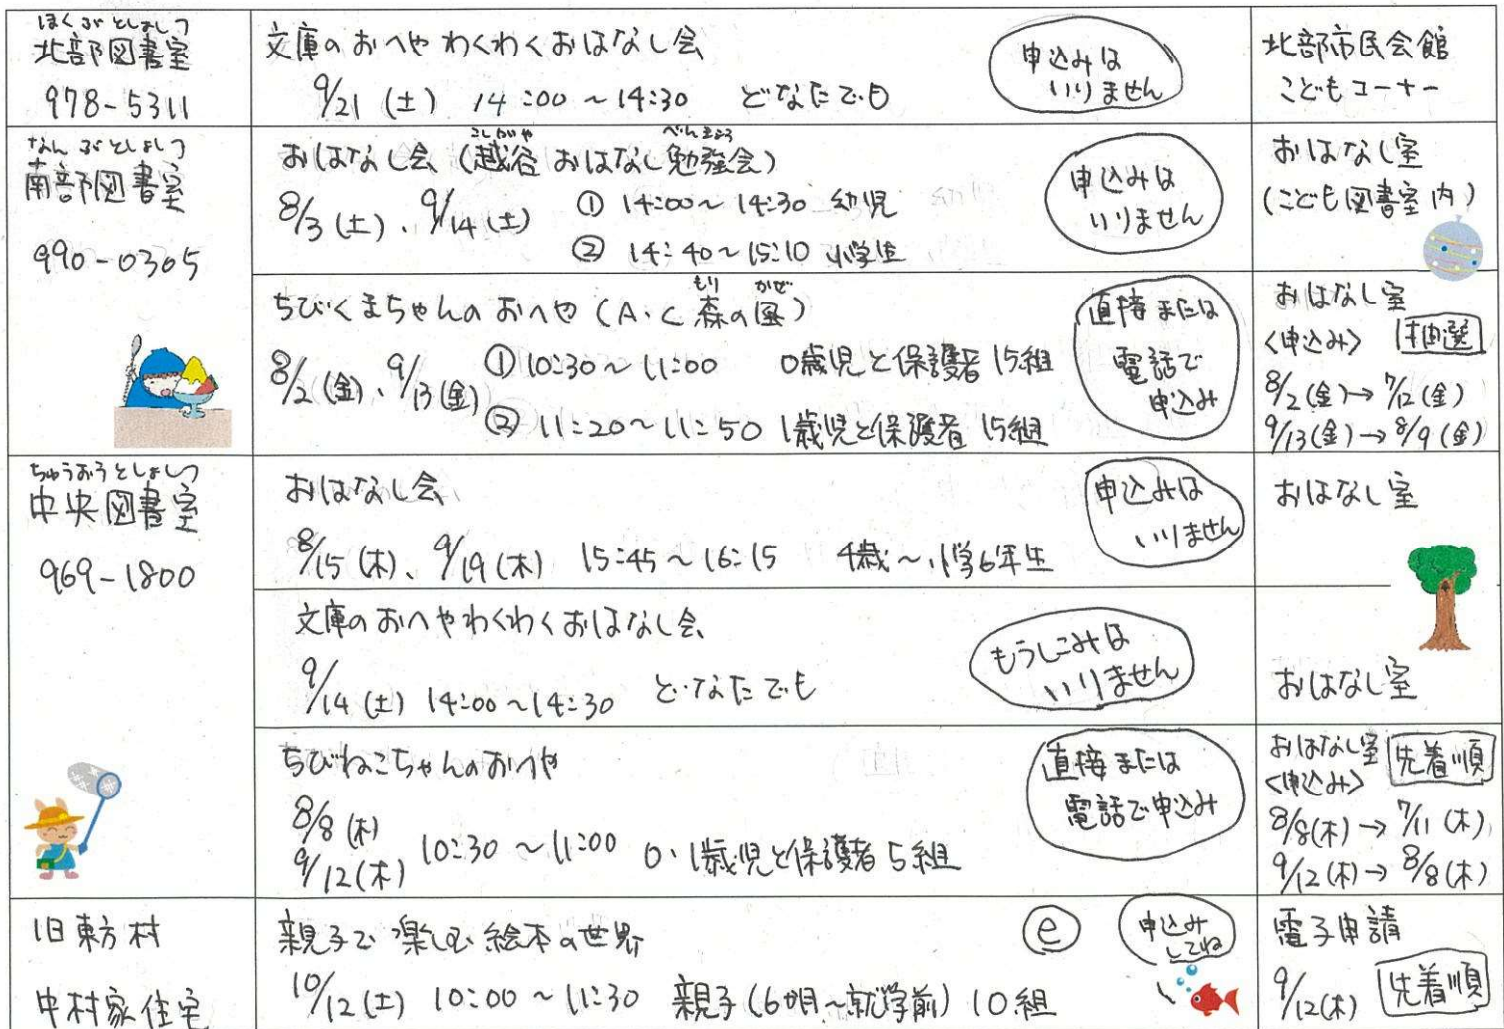 ほくぶとしょしつ
北部図書室
978-5311
文庫のおへや わくわくおはなし会
9/21 (土) 14:00～14:30 どなたでも
申込みは
いりません
北部市民会館
こどもコーナー
なんぶとしょしつ
南部図書室
990-0305
こしがや べんきょう
おはなし会 (越谷 おはなし勉強会)
8/3 (土)、9/14 (土) ① 14:00～14:30 幼児
② 14:40～15:10 小学生
申込みは
いりません
おはなし室
(こども図書室内)
もり かぜ
ちびくまちゃんの おへや (A.C 森の風)
8/2 (金)、9/13 (金) ① 10:30～11:00 0歳児と保護者 15組
② 11:20～11:50 1歳児と保護者 15組
直接または
電話で
申込み
おはなし室
<申込み> 抽選
8/2 (金)→7/12 (金)
9/13 (金)→8/9 (金)
ちゅうおうとしょしつ
中央図書室
969-1800
おはなし会
8/15 (木)、9/19 (木) 15:45～16:15 4歳～小学6年生
申込みは
いりません
おはなし室
文庫のおへやわくわくおはなし会
9/14 (土) 14:00～14:30 どなたでも
もうしこみは
いりません
おはなし室
ちびねこちゃんのおへや
8/8 (木)
9/12 (木) 10:30～11:00 0・1歳児と保護者 5組
直接または
電話で申込み
おはなし室 先着順
<申込み>
8/8(木)→7/11 (木)
9/12 (木)→8/8 (木)
旧東方村
中村家住宅
親子で楽しむ絵本の世界
10/12 (土) 10:00～11:30 親子 (6ヵ月～就学前) 10組
e
申込み
してね
電子申請
9/12(木) 先着順